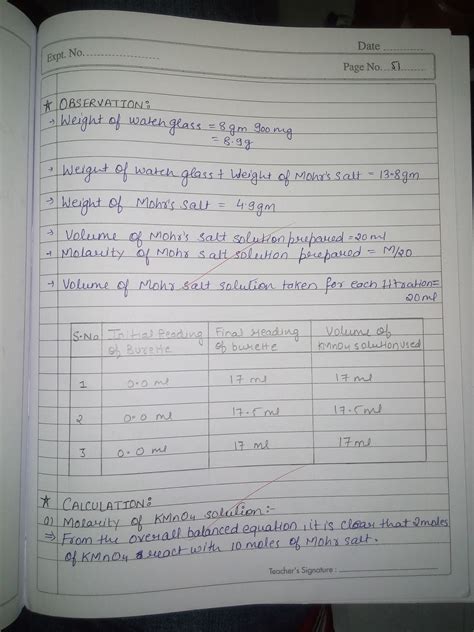 Date ............
Expt. No. ........................
Page No. ... 51
★ OBSERVATION:
→ Weight of watch glass = 8gm 900 mg
= 8.9g
→ Weigut of watch glass + Weight of Mohr's salt = 13.8gm
→ Weight of Mohr's Salt = 4.9gm
→ Volume of Mohr's salt solution prepared = 20 ml
→ Molarity of Mohr salt solution prepared = M/20
→ Volume of Mohr salt solution taken for each titration=
20 ml
S.No Initial Reading of Burette Final reading of burette Volume of KMnO4 solution used
1 0.0 ml 17 ml 17 ml
2 0.0 ml 17.5 ml 17.5 ml
3 0.0 ml 17 ml 17 ml
★ CALCULATION:
a) Molarity of KMnO4 solution:-
⇒ From the overall balanced equation, it is clear that 2 moles
of KMnO4 react with 10 moles of Mohr salt.
Teacher's Signature : ....................